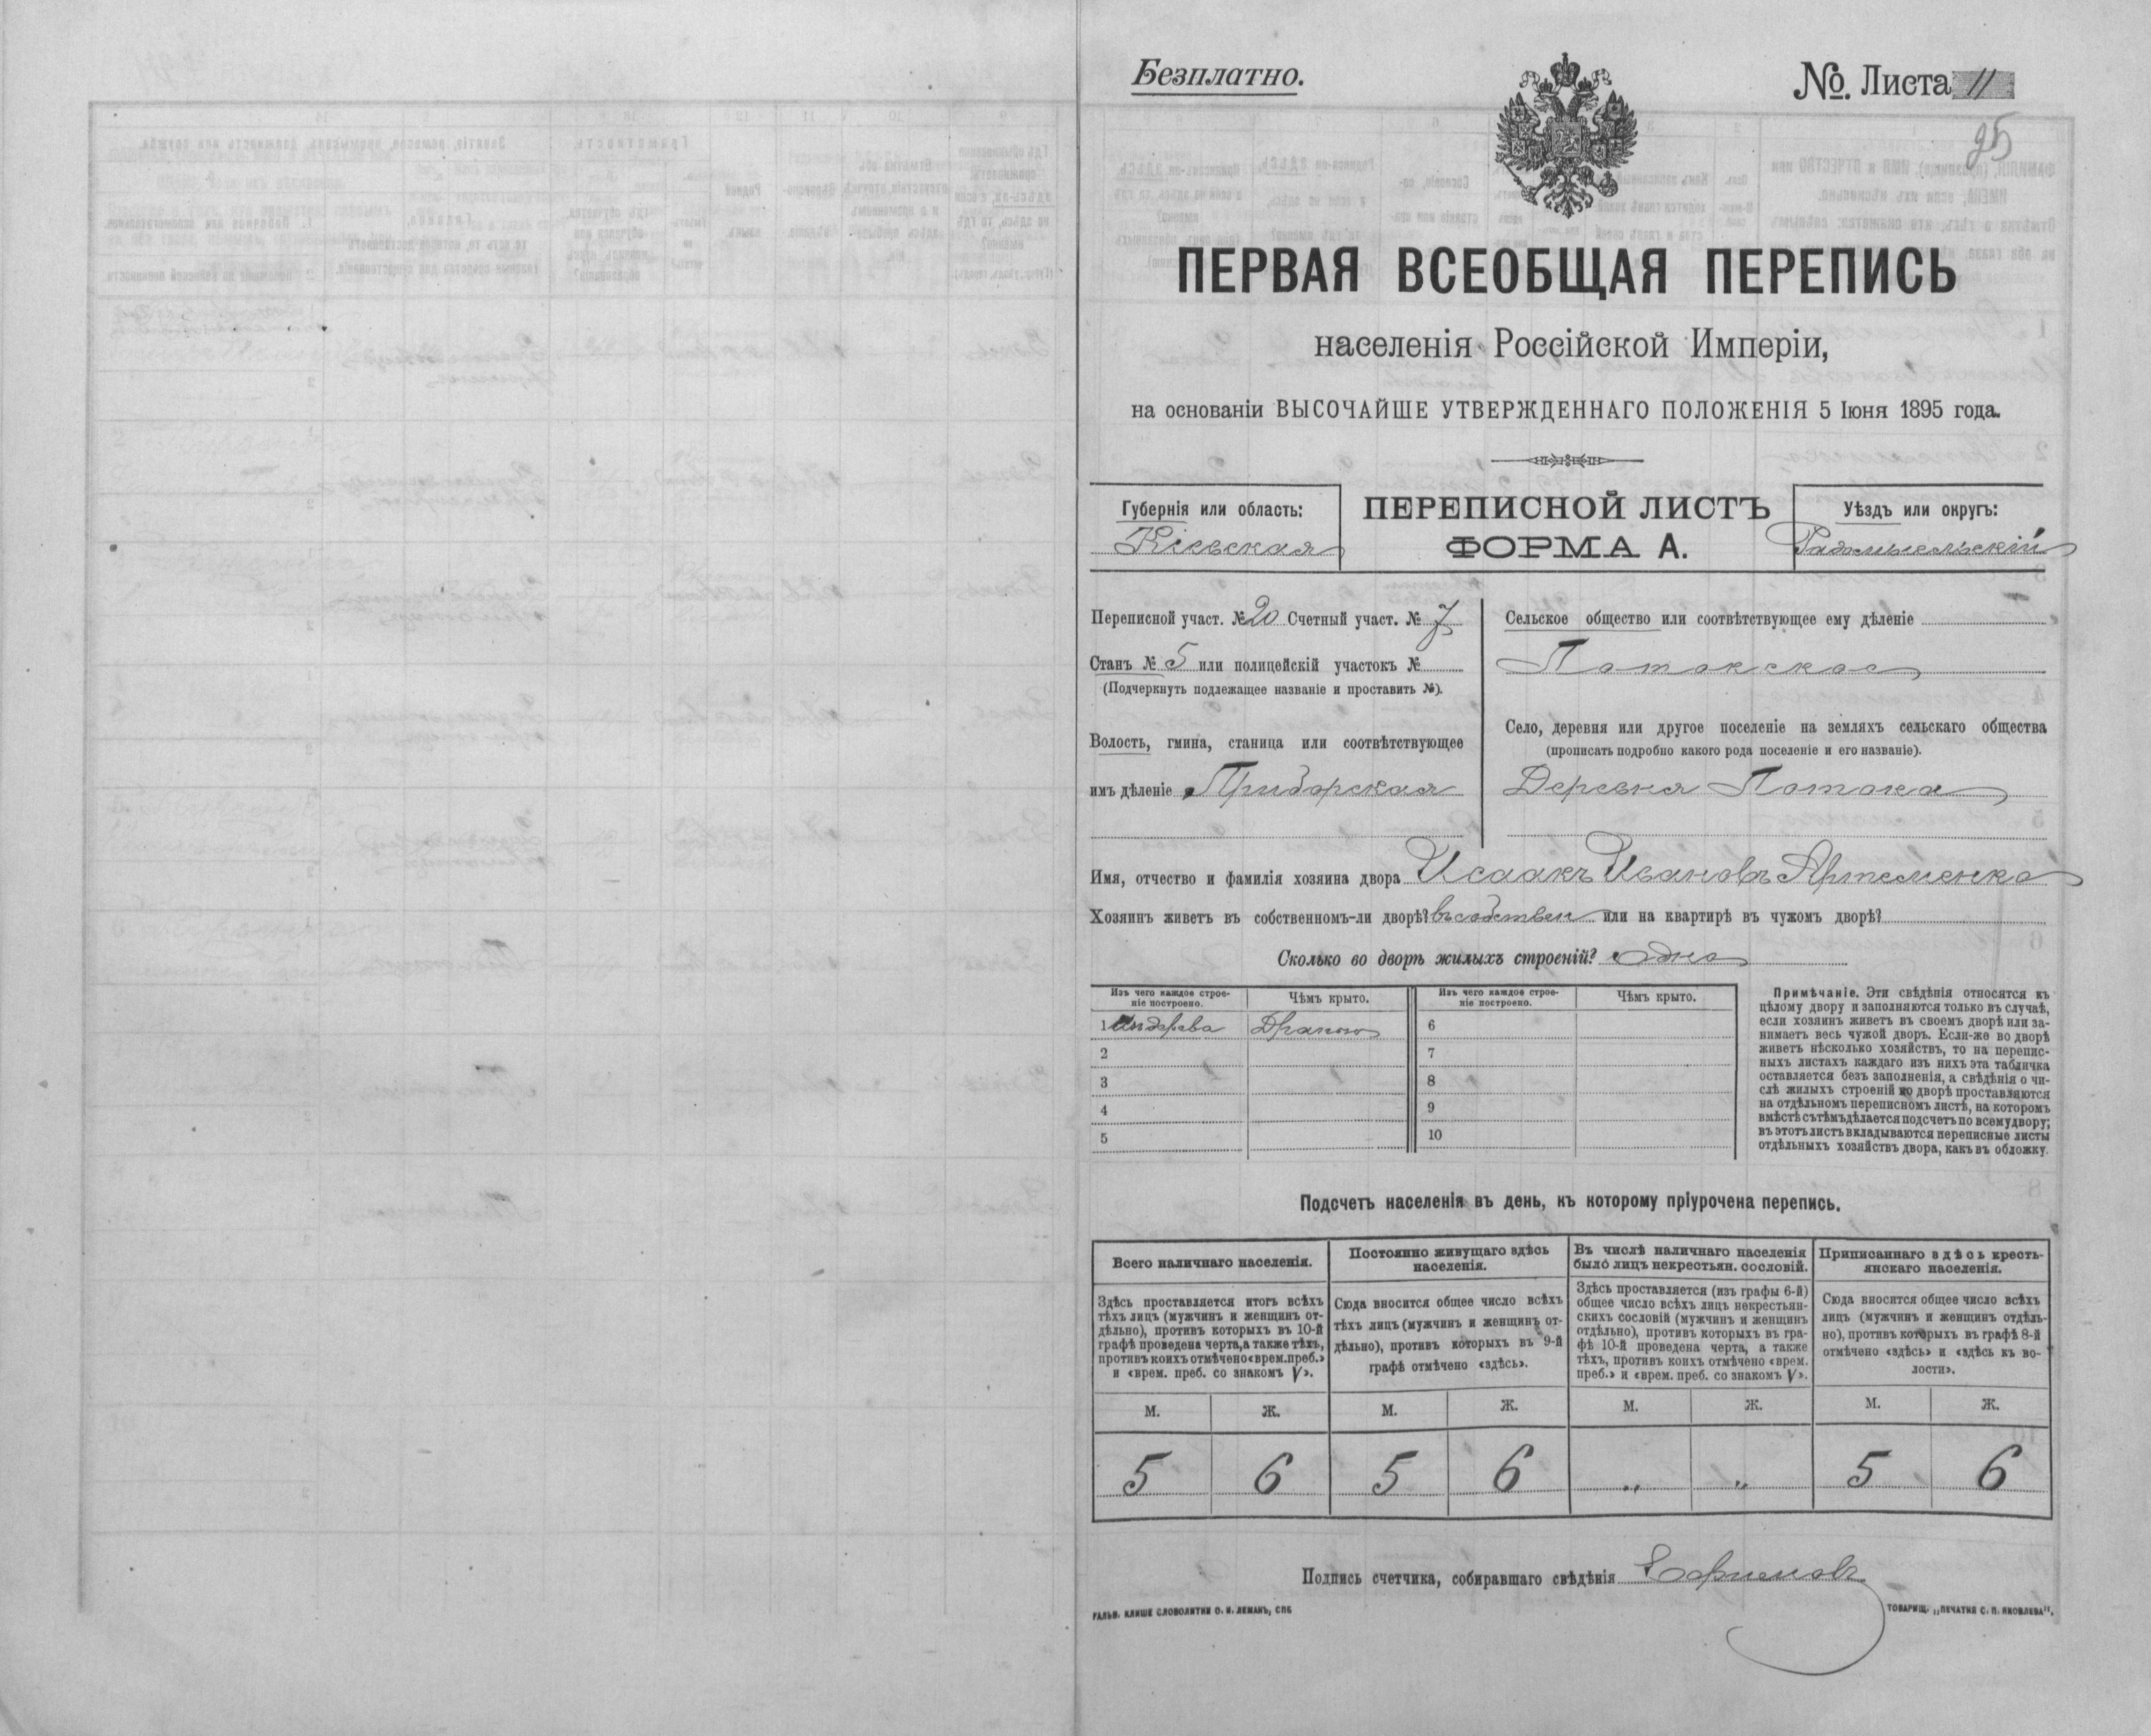 Безплатно.
№. Листа 11
95
ПЕРВАЯ ВСЕОБЩАЯ ПЕРЕПИСЬ
населенія Россійской Имперіи,
на основаніи ВЫСОЧАЙШЕ УТВЕРЖДЕННАГО ПОЛОЖЕНІЯ 5 Іюня 1895 года.
Губернія или область:
Кіевская
ПЕРЕПИСНОЙ ЛИСТЪ
ФОРМА А.
Уѣздъ или округъ:
Радомысльскій
Переписной участ. № 20 Счетный участ. № 7
Станъ № 5 или полицейскій участокъ №
(Подчеркнуть подлежащее названіе и проставить №).
Волость, гмина, станица или соотвѣтствующее
имъ дѣленіе Приборская
Сельское общество или соотвѣтствующее ему дѣленіе
Потокское
Село, деревня или другое поселеніе на земляхъ сельскаго общества
(прописать подробно какого рода поселеніе и его названіе).
Деревня Потока
Имя, отчество и фамилія хозяина двора Исаакъ Ивановъ Артеменко
Хозяинъ живетъ въ собственномъ-ли дворѣ? въ собствен или на квартирѣ въ чужомъ дворѣ?
Сколько во дворѣ жилыхъ строеній? одно
Изъ чего каждое строе-
ніе построено.
Чѣмъ крыто.
Изъ чего каждое строе-
ніе построено.
Чѣмъ крыто.
1 Изъ дерева Дранью 6
2 7
3 8
4 9
5 10
Примѣчаніе. Эти свѣдѣнія относятся къ
цѣлому двору и заполняются только въ случаѣ,
если хозяинъ живетъ въ своемъ дворѣ или за-
нимаетъ весь чужой дворъ. Если-же во дворѣ
живетъ нѣсколько хозяйствъ, то на перепис-
ныхъ листахъ каждаго изъ нихъ эта табличка
оставляется безъ заполненія, а свѣдѣнія о чи-
слѣ жилыхъ строеній во дворѣ проставляются
на отдѣльномъ переписномъ листѣ, на которомъ
вмѣстѣ съ тѣмъ дѣлается подсчетъ по всему двору;
въ этотъ листъ вкладываются переписные листы
отдѣльныхъ хозяйствъ двора, какъ въ обложку.
Подсчетъ населенія въ день, къ которому пріурочена перепись.
Всего наличнаго населенія.
Здѣсь проставляется итогъ всѣхъ
тѣхъ лицъ (мужчинъ и женщинъ от-
дѣльно), противъ которыхъ въ 10-й
графѣ проведена черта, а также тѣхъ,
противъ коихъ отмѣчено «врем. преб.»
и «врем. преб. со знакомъ V».
Постоянно живущаго здѣсь
населенія.
Сюда вносится общее число всѣхъ
тѣхъ лицъ (мужчинъ и женщинъ от-
дѣльно), противъ которыхъ въ 9-й
графѣ отмѣчено «здѣсь».
Въ числѣ наличнаго населенія
было лицъ некрестьян. сословій.
Здѣсь проставляется (изъ графы 6-й)
общее число всѣхъ лицъ некрестьян-
скихъ сословій (мужчинъ и женщинъ
отдѣльно), противъ которыхъ въ гра-
фѣ 10-й проведена черта, а также
тѣхъ, противъ коихъ отмѣчено «врем.
преб.» и «врем. преб. со знакомъ V».
Приписаннаго здѣсь кресть-
янскаго населенія.
Сюда вносится общее число всѣхъ
лицъ (мужчинъ и женщинъ отдѣль-
но), противъ которыхъ въ графѣ 8-й
отмѣчено «здѣсь» и «здѣсь къ во-
лости».
М. Ж. М. Ж. М. Ж. М. Ж.
5 6 5 6 „ „ 5 6
Подпись счетчика, собиравшаго свѣдѣнія Ефимовъ
ГАЛЬВ. КЛИШЕ СЛОВОЛИТНИ О. И. ЛЕМАНЪ, СПБ
ТОВАРИЩ. „ПЕЧАТНЯ С. П. ЯКОВЛЕВА".